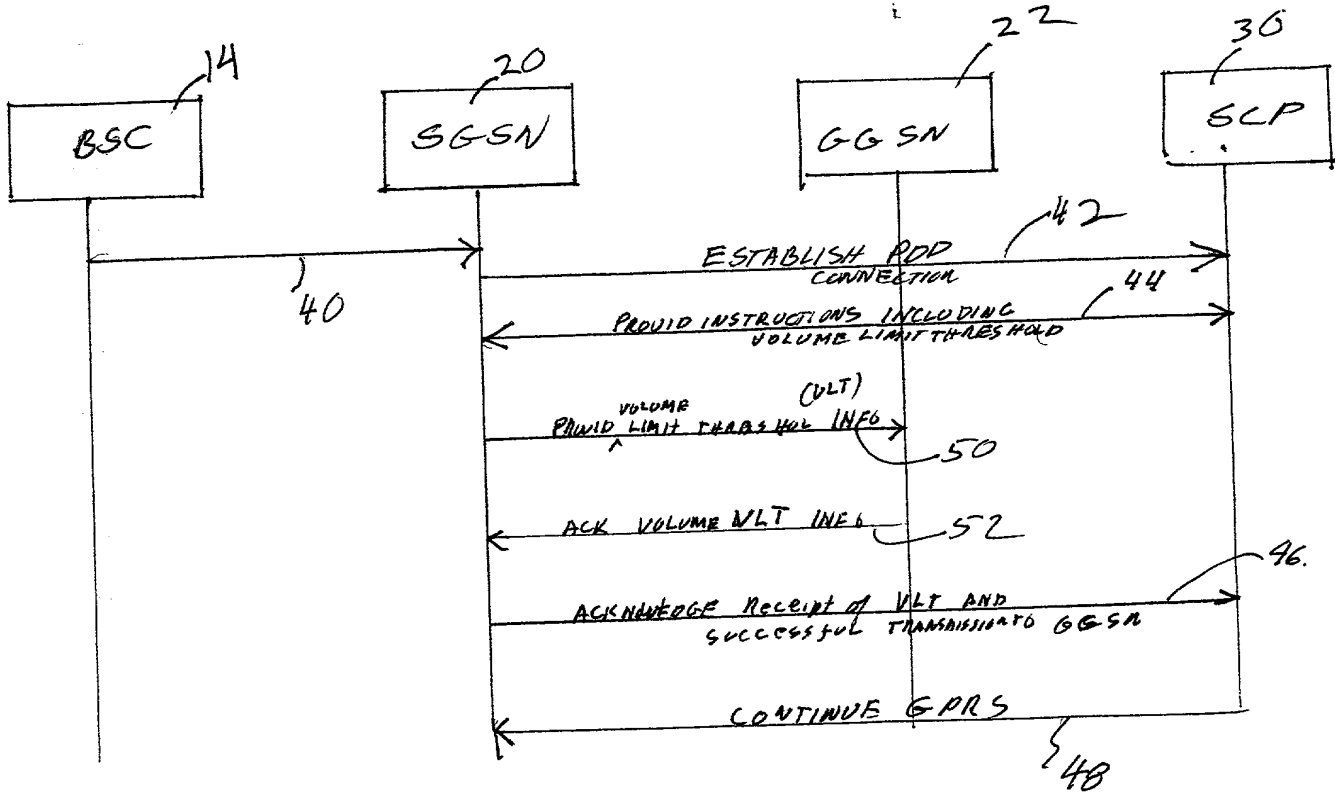 14
20
22
30
BSC
SGSN
GGSN
SCP
40
ESTABLISH PDD
CONNECTION
42
PROVID INSTRUCTIONS INCLUDING
VOLUME LIMIT THRESHOLD
44
VOLUME (VLT)
PROVID ^ LIMIT THRESHOL INFO
50
ACK VOLUME VLT INFO
52
ACKNOWEDGE Receipt of VLT AND
successful TRANSMISSION TO GGSN
46.
CONTINUE GPRS
48